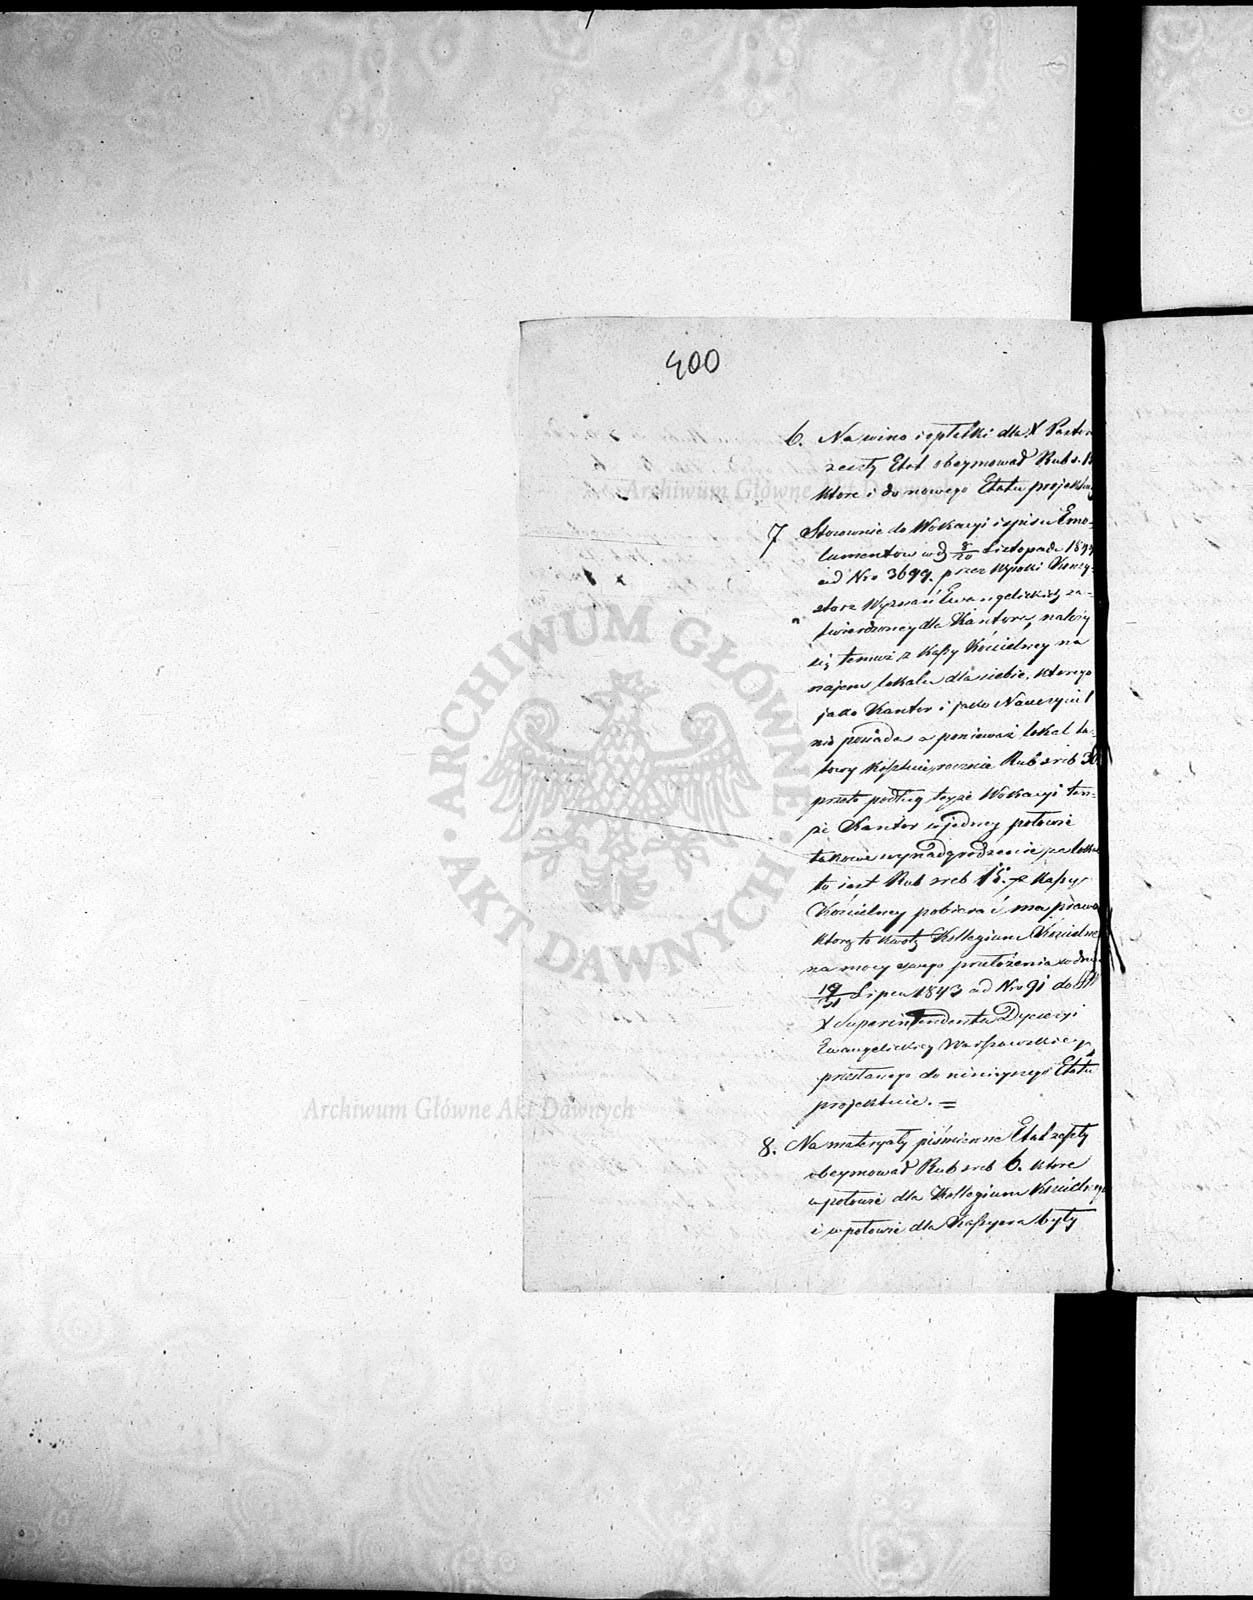 400
6. Na wino i opłatki dla X Pastora
zeszły Etat obeymował Rub s. 15
które i do nowego Etatu projektuje
7 Stosownie do Wokacyi i spisu Emo-
lumentów w d 8/20 Listopada 184
ad Nro 3699. przez Wysoki Konsy-
storz Wyznań Ewangelickich za-
twierdzoney dla Kantora, należy
się temuż z Kassy Kościelney na
najem lokalu dla siebie, którego
jako Kantor i jako Nauczyciel
nie posiada, a ponieważ lokal ta-
kowy kosztuie rocznie Rub sreb 30
przeto podług teyże Wokacyi ten-
że Kantor w jedney połowie
takowe wynadgrodzenie za lokal
to iest Rub sreb 15. z Kassy
Kościelney pobiera i ma prawo
którą to kwotę Kollegium Kościelne
na mocy swego przełożenia w dniu
19/31 Lipca 1843 ad Nro 91 do
X Superintendenta Dyecezyi
Ewangelickiey Warszawskiey
przesłanego do ninieyszego Etatu
projektuie. =
8. Na materyały piśmienne Etat zeszły
obeymował Rub sreb 6. które
w połowie dla Kollegium Kościelnego
i w połowie dla Kassyera były
ARCHIWUM GŁÓWNE
AKT DAWNYCH
Archiwum Główne Akt Dawnych
Archiwum Główne Akt Dawnych